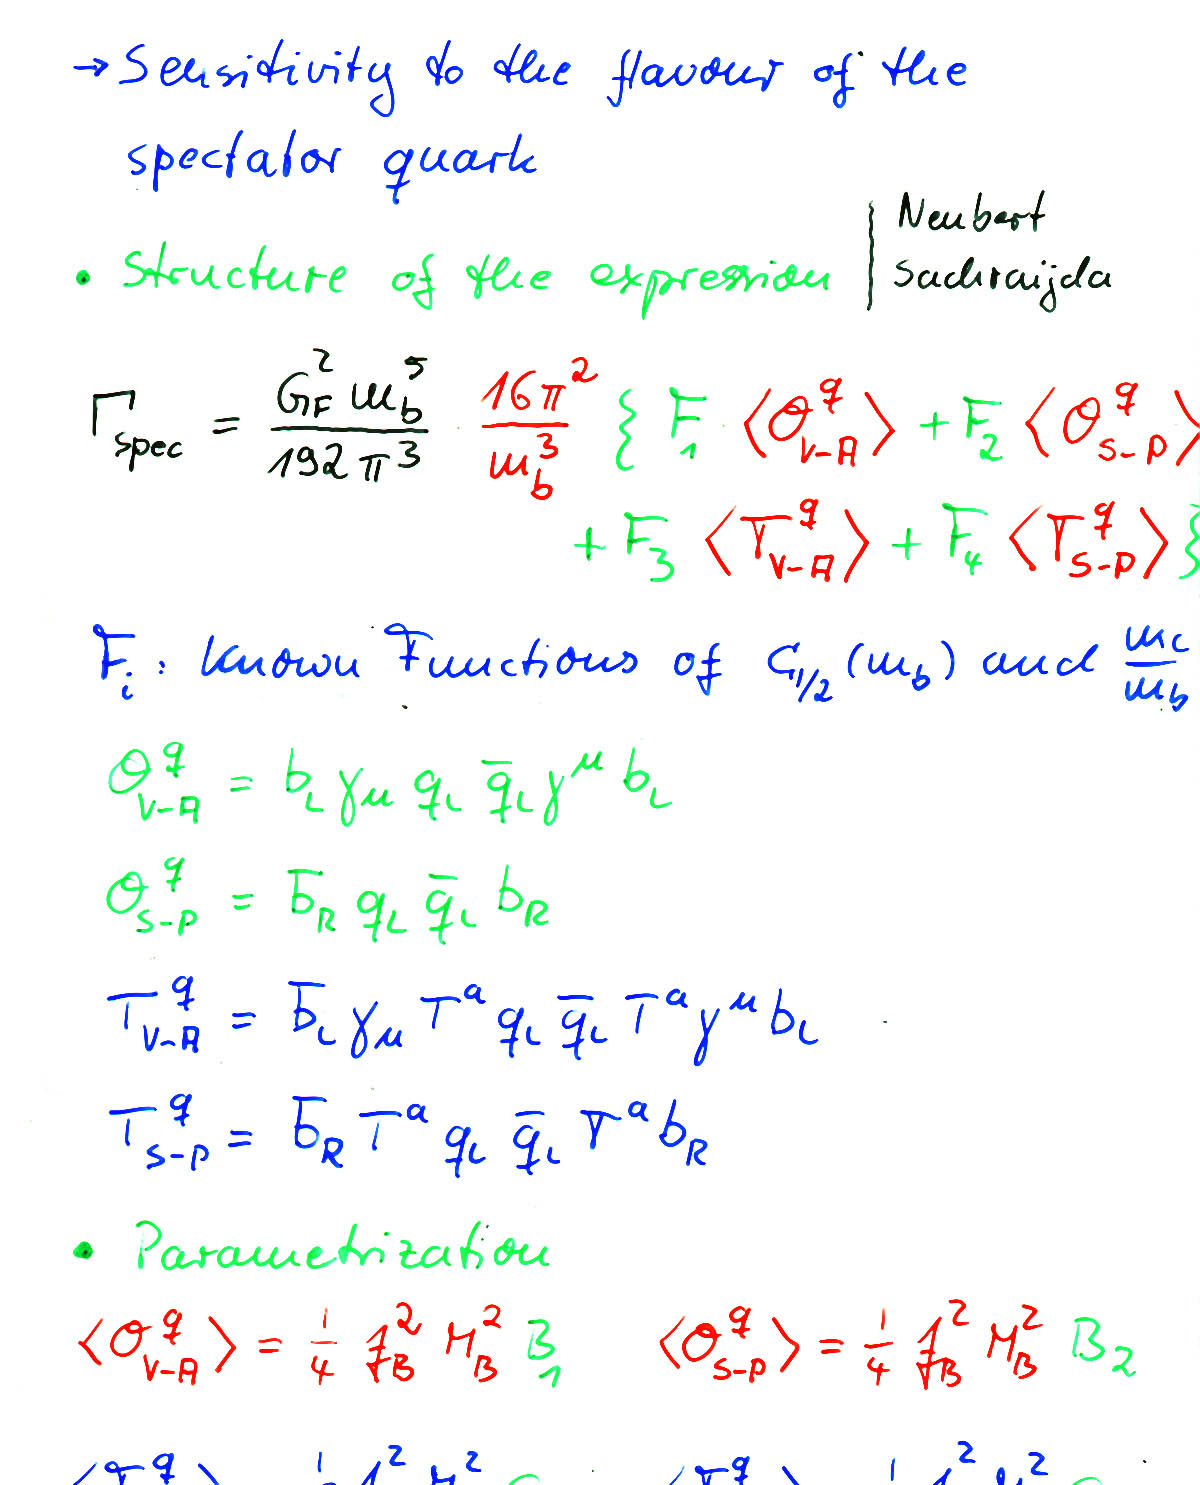 → Sensitivity to the flavour of the
spectator quark
• Structure of the expression | Neubert
Sachraijda
Γ_spec = G_F^2 m_b^5 / 192 π^3 · 16π^2 / m_b^3 { F_1 ⟨O^q_{V-A}⟩ + F_2 ⟨O^q_{S-P}⟩
+ F_3 ⟨T^q_{V-A}⟩ + F_4 ⟨T^q_{S-P}⟩ }
F_i : Known Functions of C_{1/2} (m_b) and m_c / m_b
O^q_{V-A} = b_L γ_μ q_L q̄_L γ^μ b_L
O^q_{S-P} = b̄_R q_L q̄_L b_R
T^q_{V-A} = b̄_L γ_μ T^a q_L q̄_L T^a γ^μ b_L
T^q_{S-P} = b̄_R T^a q_L q̄_L T^a b_R
• Parametrization
⟨O^q_{V-A}⟩ = 1/4 f_B^2 M_B^2 B_1 ⟨O^q_{S-P}⟩ = 1/4 f_B^2 M_B^2 B_2